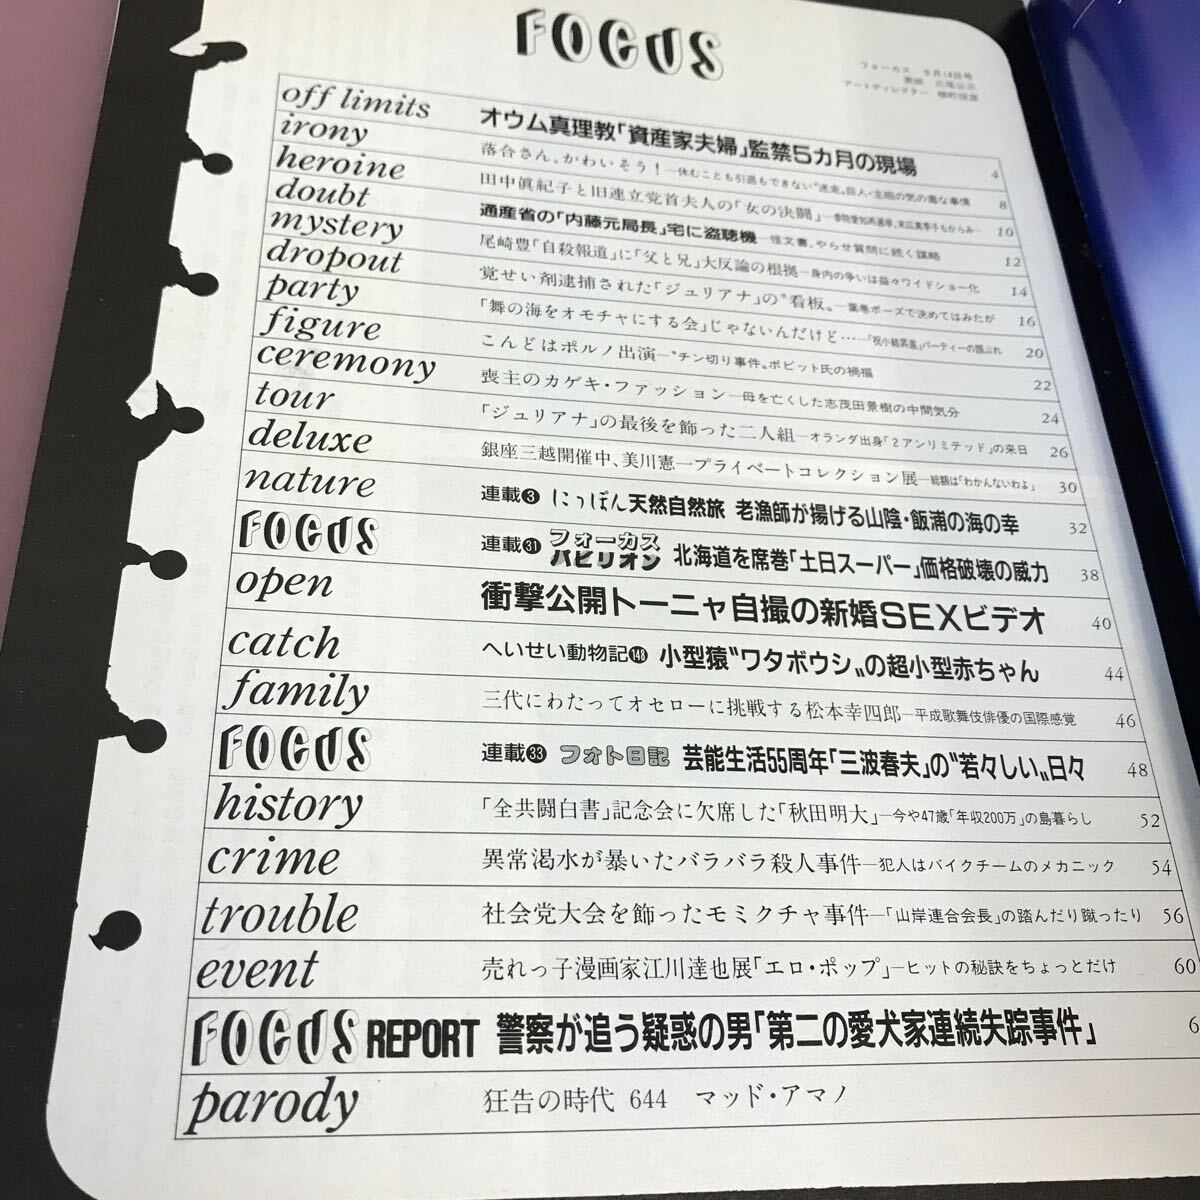 FOCUS
フォーカス 9月14日号
表紙 三尾公三
アートディレクター
off limits オウム真理教「資産家夫婦」監禁5カ月の現場 4
irony 落合さん、かわいそう！―休むことも引退もできない“迷走”巨人・主砲の気の毒な事情 8
heroine 田中眞紀子と旧連立党首夫人の「女の決闘」―参院愛知再選挙、末広真季子もからみ― 10
doubt 通産省の「内藤元局長」宅に盗聴機―怪文書、やらせ質問に続く謀略 12
mystery 尾崎豊「自殺報道」に「父と兄」大反論の根拠―身内の争いは益々ワイドショー化 14
dropout 覚せい剤逮捕された「ジュリアナ」の“看板”―葉巻ポーズで決めてはみたが 16
party 「舞の海をオモチャにする会」じゃないんだけど…―「祝小結昇進」パーティーの顔ぶれ 20
figure こんどはポルノ出演―“チン切り事件”ボビット氏の禍福 22
ceremony 喪主のカゲキ・ファッション―母を亡くした志茂田景樹の中間気分 24
tour 「ジュリアナ」の最後を飾った二人組―オランダ出身「2アンリミテッド」の来日 26
deluxe 銀座三越開催中、美川憲一プライベートコレクション展―総額は「わかんないわよ」 30
nature 連載❸ にっぽん天然自然旅 老漁師が揚げる山陰・飯浦の海の幸 32
FOCUS 連載㉛ フォーカスパビリオン 北海道を席巻「土日スーパー」価格破壊の威力 38
open 衝撃公開トーニャ自撮の新婚SEXビデオ 40
catch へいせい動物記148 小型猿“ワタボウシ”の超小型赤ちゃん 44
family 三代にわたってオセローに挑戦する松本幸四郎―平成歌舞伎俳優の国際感覚 46
FOCUS 連載㉝ フォト日記 芸能生活55周年「三波春夫」の“若々しい”日々 48
history 「全共闘白書」記念会に欠席した「秋田明大」―今や47歳「年収200万」の島暮らし 52
crime 異常渇水が暴いたバラバラ殺人事件―犯人はバイクチームのメカニック 54
trouble 社会党大会を飾ったモミクチャ事件―「山岸連合会長」の踏んだり蹴ったり 56
event 売れっ子漫画家江川達也展「エロ・ポップ」―ヒットの秘訣をちょっとだけ 60
FOCUS REPORT 警察が追う疑惑の男「第二の愛犬家連続失踪事件」 6
parody 狂告の時代 644 マッド・アマノ